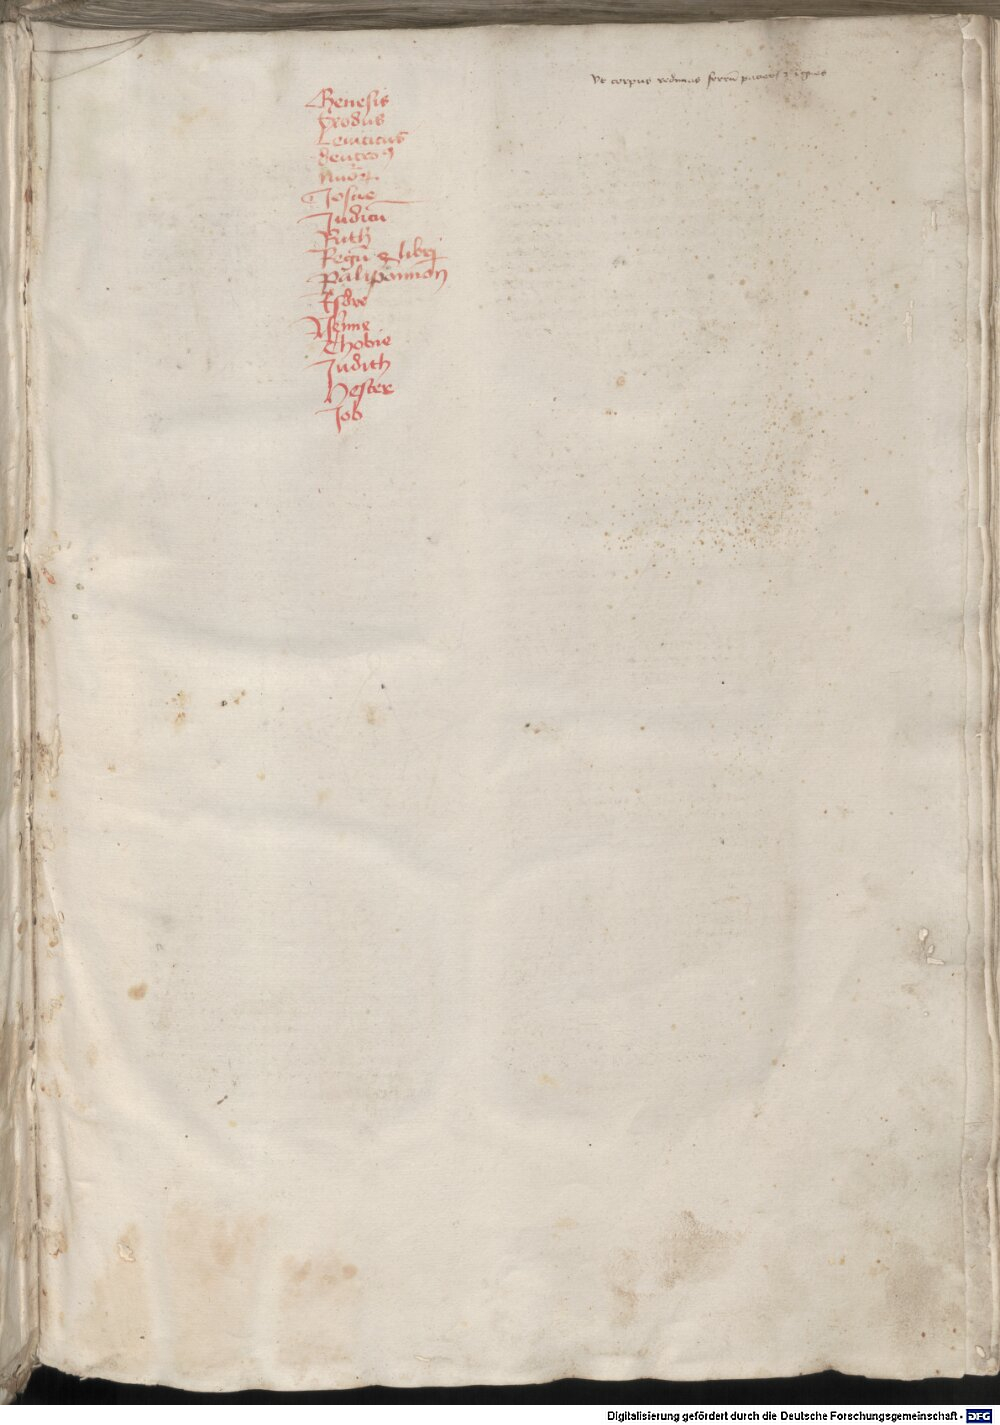 Ut corpus redimas ferrū pacieris & ignes
Genesis
Exodus
Leuiticus
Deutro
Nuō
Josue
Judicū
Ruth
Regū 4 libri
Paralipomenon
Esdre
Neemie
Thobie
Judith
Hester
Job
Digitalisierung gefördert durch die Deutsche Forschungsgemeinschaft - DFG